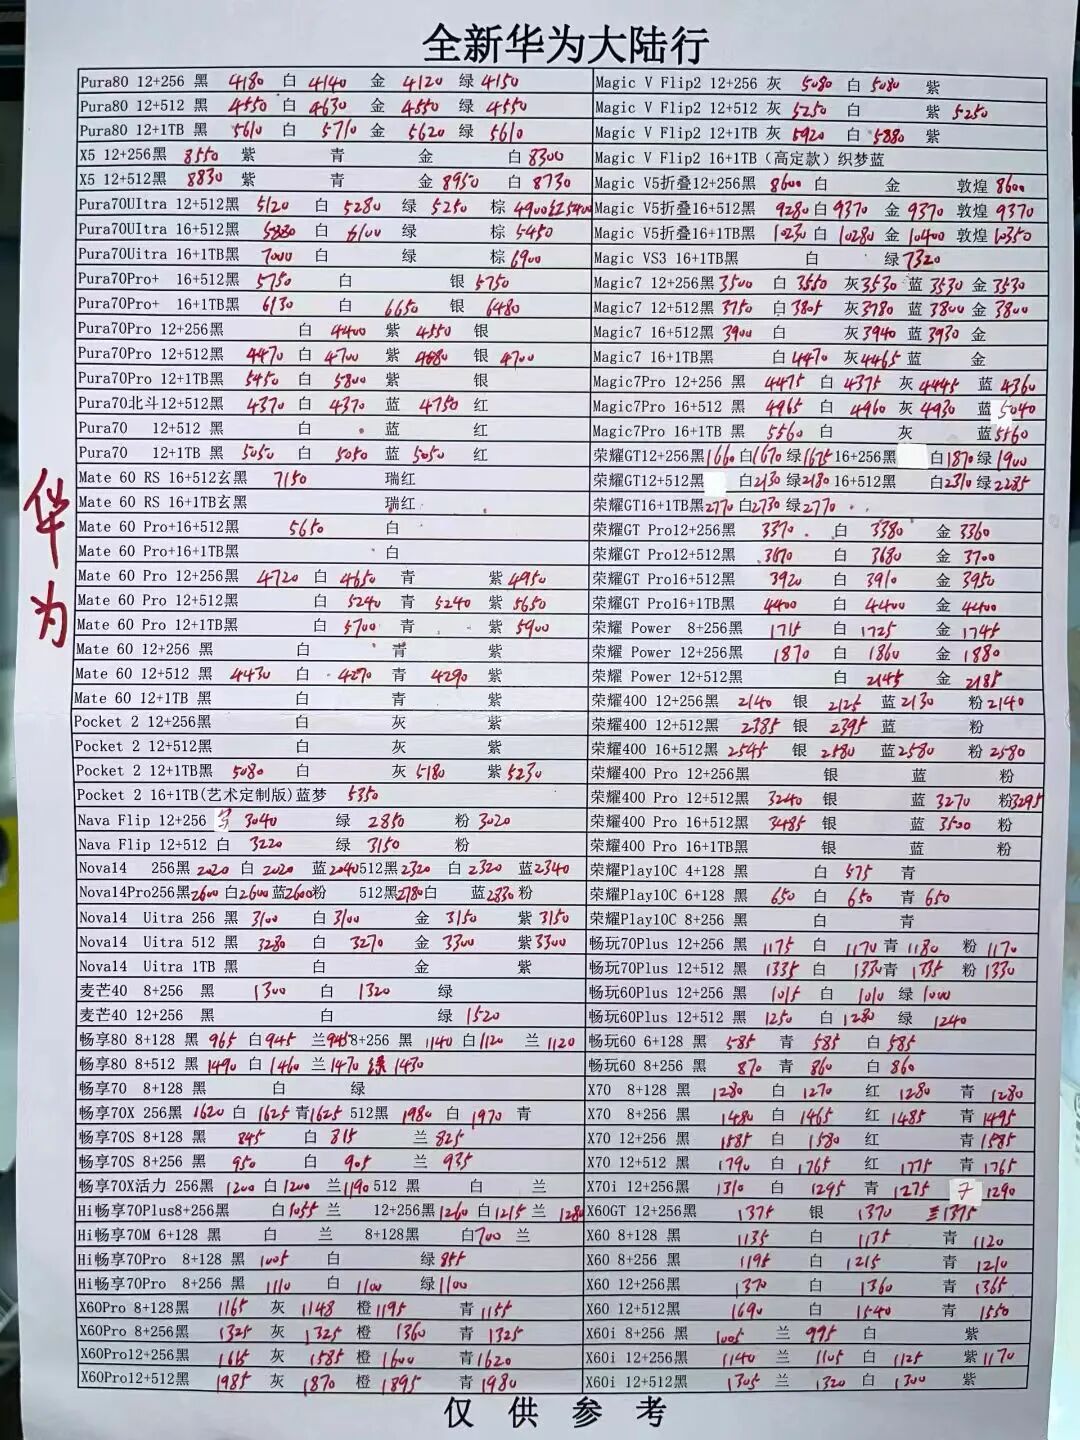 全新华为大陆行
Pura80 12+256 黑 4180 白 4140 金 4120 绿 4150
Pura80 12+512 黑 4550 白 4630 金 4550 绿 4550
Pura80 12+1TB 黑 5610 白 5710 金 5620 绿 5610
X5 12+256黑 8550 紫 青 金 白 8300
X5 12+512黑 8830 紫 青 金 8950 白 8730
Pura70UItra 12+512黑 5120 白 5280 绿 5250 棕 4900 红5400
Pura70UItra 16+512黑 白 6100 绿 棕 5450
Pura70Uitra 16+1TB黑 7000 白 绿 棕 6900
Pura70Pro+ 16+512黑 5750 白 银 5750
Pura70Pro+ 16+1TB黑 6130 白 6650 银 6480
Pura70Pro 12+256黑 白 4400 紫 4550 银
Pura70Pro 12+512黑 4470 白 4700 紫 银 4700
Pura70Pro 12+1TB黑 5450 白 5800 紫 银
Pura70北斗12+512黑 4370 白 4370 蓝 4750 红
Pura70 12+512 黑 白 蓝 红
Pura70 12+1TB 黑 5050 白 5050 蓝 5050 红
Mate 60 RS 16+512玄黑 7150 瑞红
Mate 60 RS 16+1TB玄黑 瑞红
Mate 60 Pro+16+512黑 5650 白
Mate 60 Pro+16+1TB黑 白
Mate 60 Pro 12+256黑 4720 白 4650 青 紫 4950
Mate 60 Pro 12+512黑 白 5240 青 5240 紫 5650
Mate 60 Pro 12+1TB黑 白 5700 青 紫 5900
Mate 60 12+256 黑 白 青 紫
Mate 60 12+512 黑 4430 白 4270 青 4290 紫
Mate 60 12+1TB 黑 白 青 紫
Pocket 2 12+256黑 白 灰 紫
Pocket 2 12+512黑 白 灰 紫
Pocket 2 12+1TB黑 5080 白 灰 5180 紫 5230
Pocket 2 16+1TB(艺术定制版)蓝梦 5350
Nava Flip 12+256 3040 绿 2850 粉 3020
Nava Flip 12+512 白 3220 绿 3150 粉
Nova14 256黑 2020 白 2020 蓝 2040 512黑 2320 白 2320 蓝 2340
Nova14Pro256黑 2600 白 2600 蓝 2600 粉 512黑 2780 白 蓝 2830 粉
Nova14 Uitra 256 黑 3100 白 3100 金 3150 紫 3150
Nova14 Uitra 512 黑 3280 白 3270 金 3300 紫 3300
Nova14 Uitra 1TB 黑 白 金 紫
麦芒40 8+256 黑 1300 白 1320 绿
麦芒40 12+256 黑 白 绿 1520
畅享80 8+128 黑 965 白 945 兰 945 8+256 黑 1140 白 1120 兰 1120
畅享80 8+512 黑 1490 白 1460 兰 1470 绿 1430
畅享70 8+128 黑 白 绿
畅享70X 256黑 1620 白 1625 青 1625 512黑 1980 白 1970 青
畅享70S 8+128 黑 845 白 815 兰 825
畅享70S 8+256 黑 950 白 905 兰 935
畅享70X活力 256黑 1200 白 1200 兰 1190 512 黑 白 兰
Hi畅享70Plus8+256黑 白 1055 兰 12+256黑 1260 白 1215 兰 1280
Hi畅享70M 6+128 黑 白 兰 8+128黑 白 700 兰
Hi畅享70Pro 8+128 黑 1005 白 绿 855
Hi畅享70Pro 8+256 黑 1110 白 1100 绿 1100
X60Pro 8+128黑 1165 灰 1148 橙 1195 青 1155
X60Pro 8+256黑 1325 灰 1325 橙 1360 青 1325
X60Pro12+256黑 1615 灰 1585 橙 1600 青 1620
X60Pro12+512黑 1985 灰 1870 橙 1895 青 1980
Magic V Flip2 12+256 灰 5080 白 5080 紫
Magic V Flip2 12+512 灰 5250 白 紫 5250
Magic V Flip2 12+1TB 灰 5920 白 5880 紫
Magic V Flip2 16+1TB（高定款）织梦蓝
Magic V5折叠12+256黑 8600 白 金 敦煌 8600
Magic V5折叠16+512黑 9280 白 9370 金 9370 敦煌 9370
Magic V5折叠16+1TB黑 10230 白 10280 金 10400 敦煌 10350
Magic VS3 16+1TB黑 白 绿 7320
Magic7 12+256黑 3500 白 3550 灰 3530 蓝 3530 金 3530
Magic7 12+512黑 3750 白 3805 灰 3780 蓝 3800 金 3800
Magic7 16+512黑 3900 白 灰 3940 蓝 3930 金
Magic7 16+1TB黑 白 4470 灰 4465 蓝 金
Magic7Pro 12+256 黑 4475 白 4375 灰 4445 蓝 4360
Magic7Pro 16+512 黑 4965 白 4960 灰 4930 蓝 5040
Magic7Pro 16+1TB 黑 5560 白 灰 蓝 5560
荣耀GT12+256黑 1660 白 1670 绿 1675 16+256黑 白 1870 绿 1900
荣耀GT12+512黑 白 2130 绿 2180 16+512黑 白 2310 绿 2285
荣耀GT16+1TB黑 2770 白 2730 绿 2770
荣耀GT Pro12+256黑 3370 白 3380 金 3360
荣耀GT Pro12+512黑 3670 白 3680 金 3700
荣耀GT Pro16+512黑 3920 白 3910 金 3950
荣耀GT Pro16+1TB黑 4400 白 4400 金 4400
荣耀 Power 8+256黑 1715 白 1725 金 1745
荣耀 Power 12+256黑 1870 白 1860 金 1880
荣耀 Power 12+512黑 白 2145 金 2185
荣耀400 12+256黑 2140 银 2125 蓝 2130 粉 2140
荣耀400 12+512黑 2385 银 2395 蓝 粉
荣耀400 16+512黑 2545 银 2580 蓝 2580 粉 2580
荣耀400 Pro 12+256黑 银 蓝 粉
荣耀400 Pro 12+512黑 3240 银 蓝 3270 粉 3295
荣耀400 Pro 16+512黑 3485 银 蓝 3500 粉
荣耀400 Pro 16+1TB黑 银 蓝 粉
荣耀Play10C 4+128 黑 白 575 青
荣耀Play10C 6+128 黑 650 白 650 青 650
荣耀Play10C 8+256 黑 白 青
畅玩70Plus 12+256 黑 1175 白 1170 青 1180 粉 1170
畅玩70Plus 12+512 黑 1335 白 1330 青 1335 粉 1330
畅玩60Plus 12+256 黑 1015 白 1010 绿 1000
畅玩60Plus 12+512 黑 1250 白 1280 绿 1240
畅玩60 6+128 黑 585 青 585 白 585
畅玩60 8+256 黑 870 青 860 白 860
X70 8+128 黑 1280 白 1270 红 1280 青 1280
X70 8+256 黑 1480 白 1465 红 1485 青 1495
X70 12+256 黑 1585 白 1580 红 青 1585
X70 12+512 黑 1790 白 1765 红 1775 青 1765
X70i 12+256 黑 1310 白 1295 青 1275 1290
X60GT 12+256黑 1375 银 1370 1375
X60 8+128 黑 1135 白 1135 青 1120
X60 8+256 黑 1195 白 1215 青 1210
X60 12+256黑 1370 白 1360 青 1365
X60 12+512黑 1690 白 1540 青 1550
X60i 8+256 黑 1005 兰 995 白 紫
X60i 12+256黑 1140 兰 1105 白 1125 紫 1170
X60i 12+512黑 1305 兰 1320 白 1300 紫
华为
仅供参考